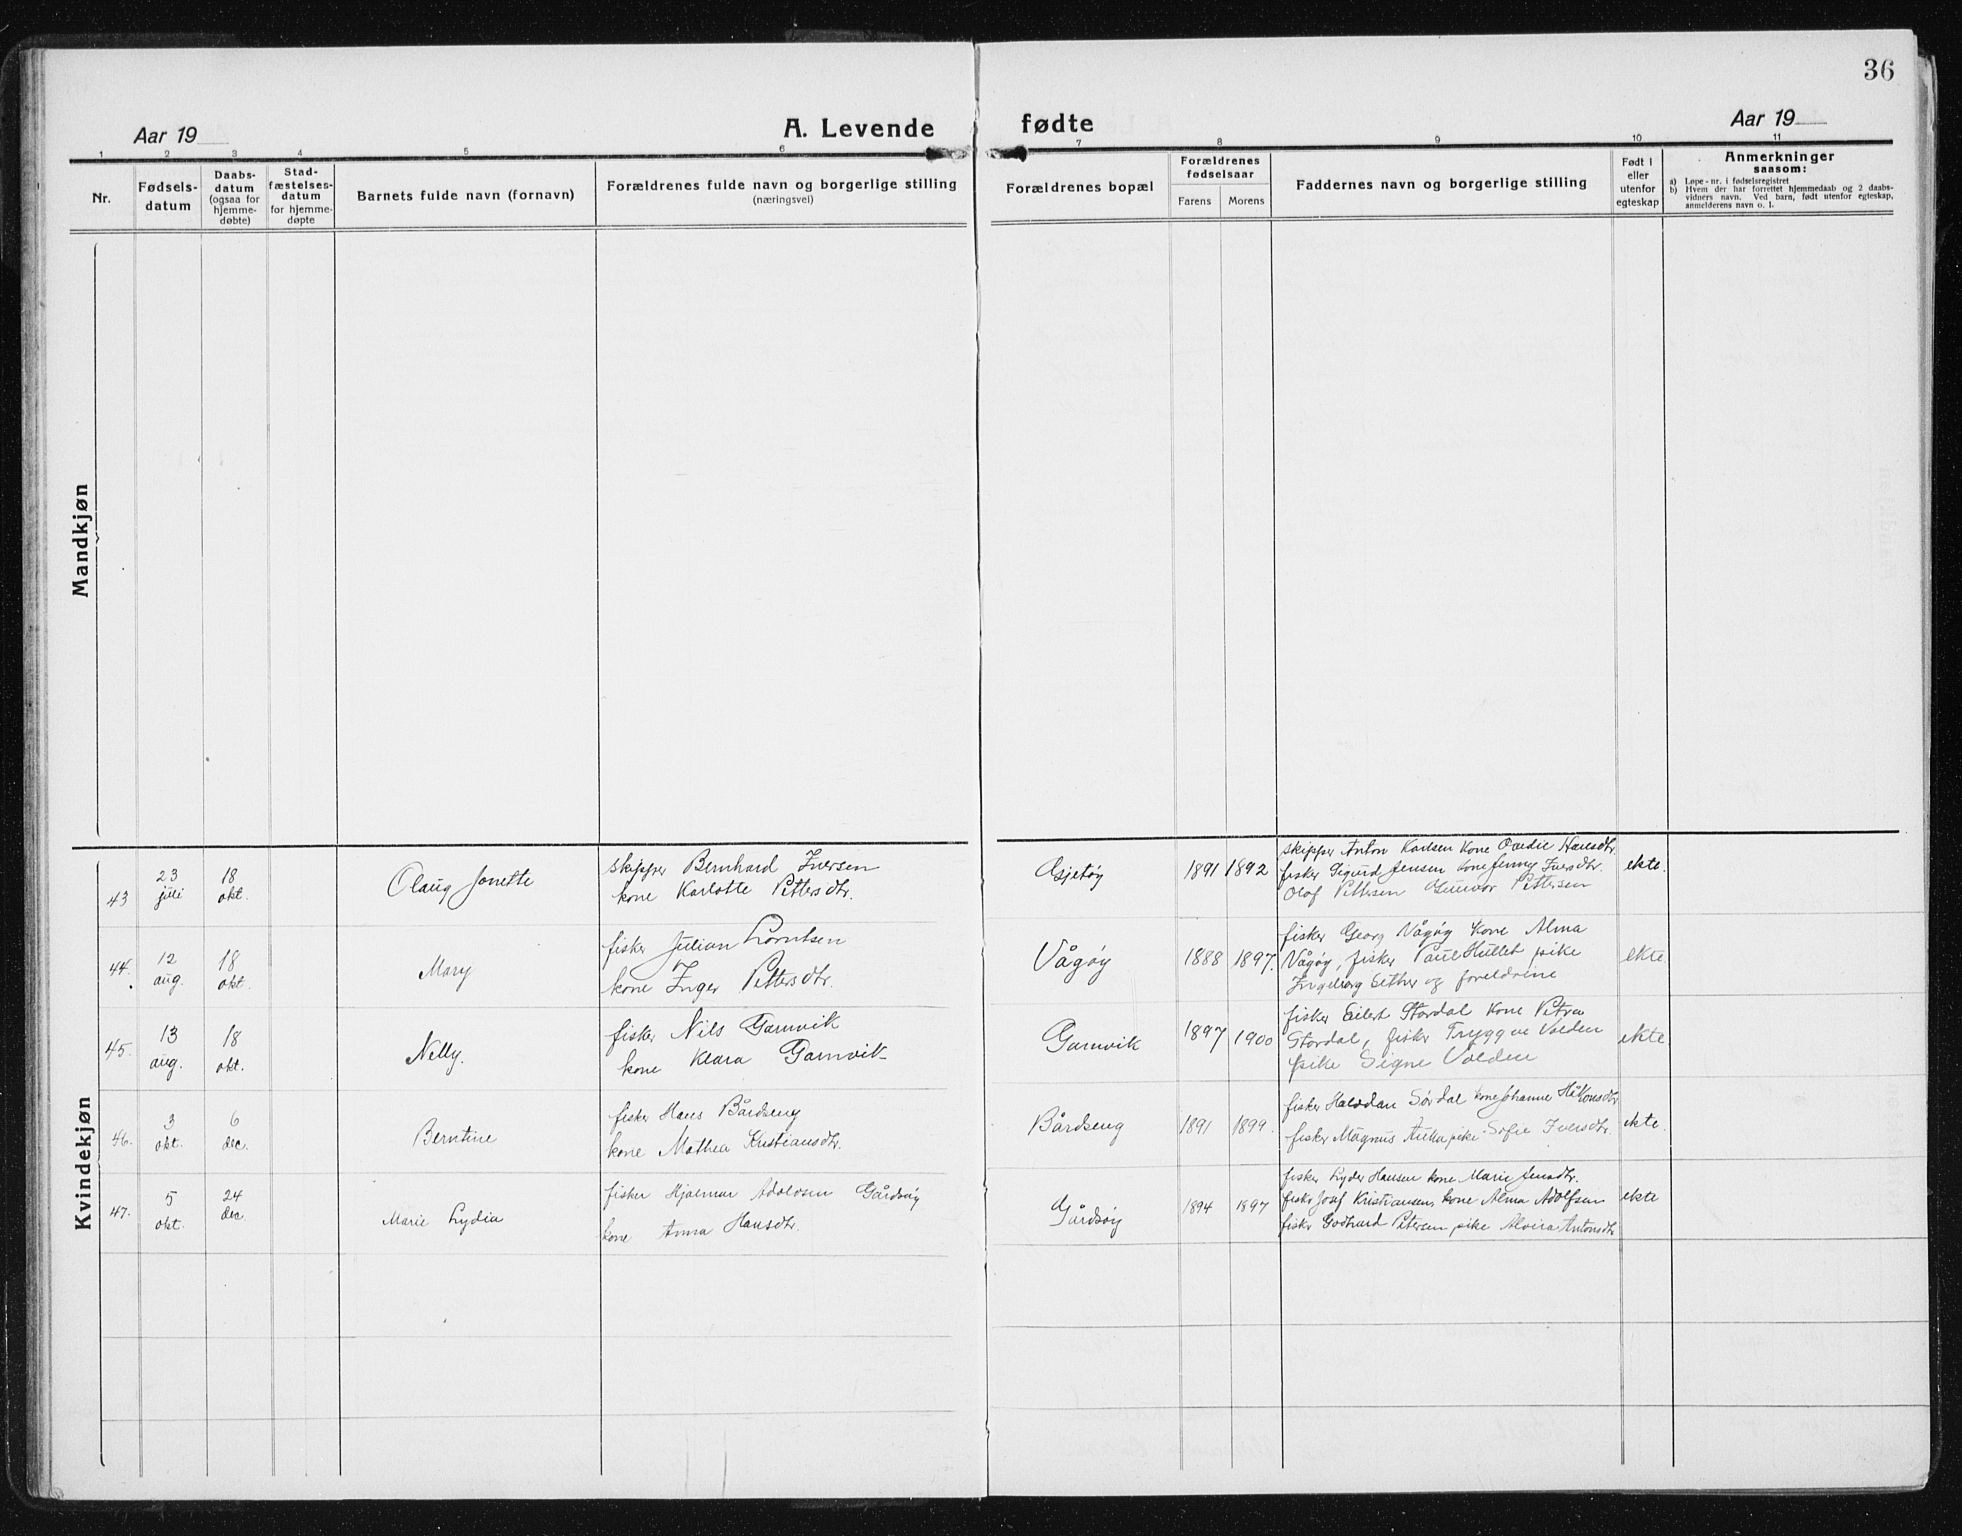 36
Aar 19
A. Levende fødte
Aar 19
1 2 3 4 5 6 7 8 9 10 11
Nr.
Fødsels-
datum
Daabs-
datum
(ogsaa for
hjemme-
døbte)
Stad-
fæstelses-
datum
for hjemme-
døpte
Barnets fulde navn (fornavn)
Forældrenes fulde navn og borgerlige stilling
(næringsvei)
Forældrenes bopæl
Forældrenes
fødselsaar
Farens Morens
Faddernes navn og borgerlige stilling
Født i
eller
utenfor
egteskap
Anmerkninger
saasom:
a) Løpe-nr. i fødselsregistret
b) Hvem der har forrettet hjemmedaab og 2 daabs-
vidners navn. Ved barn, født utenfor egteskap,
anmelderens navn o. l.
Mandkjøn
Kvindekjøn
43
23
juli
18
okt.
Olaug Jonette
skipper Bernhard Iversen
kone Karlotte Pettersdtr.
Gjetøy
1891 1892
skipper Anton Karlsen kone Hansdtr.
fisker Sigurd Jensen kone Jenny Iversdtr.
Olaf Pettersen Gunvor Pettersen
ekte.
44.
12
aug.
18
okt.
Mary
fisker Julian Lorntsen
kone Inger Pettersdtr.
Vågøy
1888 1897.
fisker Georg Vågøy kone Alma
Vågøy, fisker Paul Hullet pike
Ingeborg Sether og foreldrene
ekte
45.
13
aug.
18
okt.
Nelly.
fisker Nils Garnvik
kone Klara Garnvik
Garnvik
1897 1900
fisker Eilert Stordal kone Petra
Stordal, fisker Tryggve Valden
pike Signe Valden
ekte
46.
3
okt.
6
dec.
Berntine
fisker Hans Bårdseng
kone Mathea Kristiansdtr.
Bårdseng
1891 1899.
fisker Halvdan Sørdal kone Johanne Håkonsdtr
fisker Magnus pike Sofie Iversdtr.
ekte.
47.
5
okt.
24
dec.
Marie Lydia
fisker Hjalmar Adolvsen Gårdsøy
kone Anna Hansdtr.
Gårdsøy
1894 1897
fisker Lyder Hansen kone Marie Jensdtr.
fisker Josef Kristiansen, kone Alma Adolfsen
fisker Godhard Petersen pike Alvira Antonsdtr
ekte